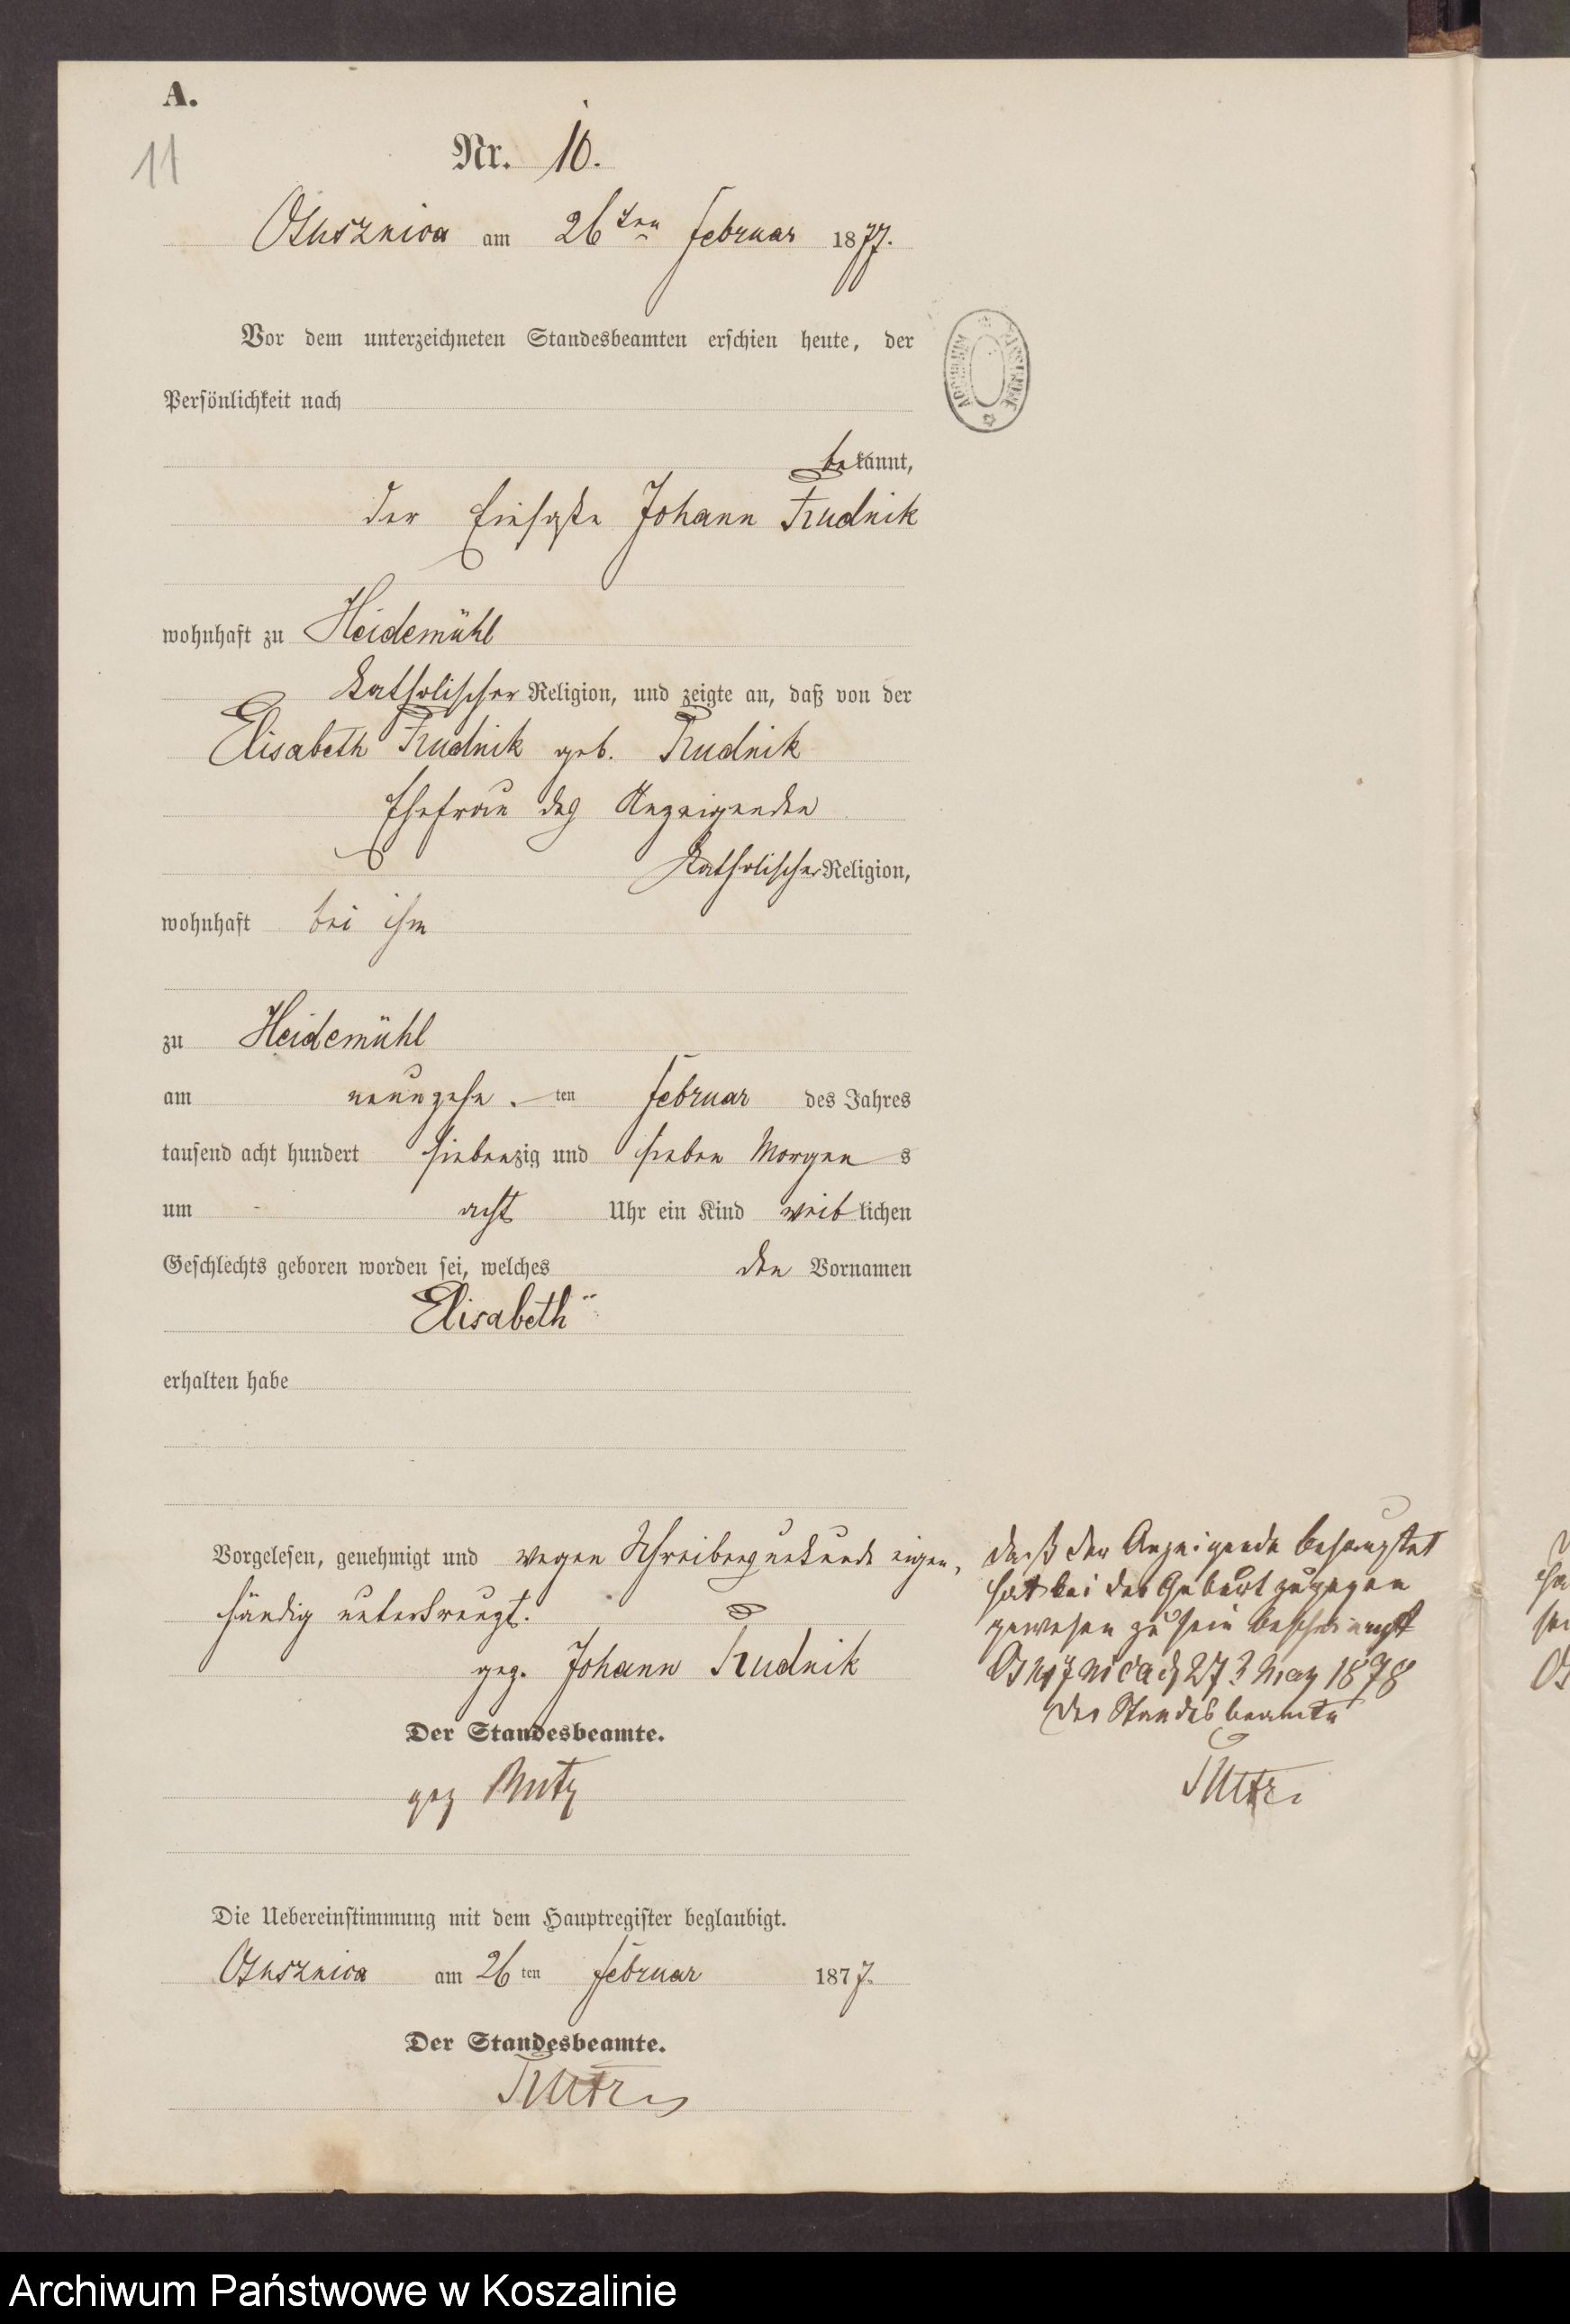 A.
11
Nr. 10.
Osusznica am 26ten Februar 1877.
Vor dem unterzeichneten Standesbeamten erschien heute, der
Persönlichkeit nach
bekannt,
der Einsaße Johann Rudnik
wohnhaft zu Heidemühl
katholischer Religion, und zeigte an, daß von der
Elisabeth Rudnik geb. Rudnik
Ehefrau des Anzeigenden
katholischer Religion,
wohnhaft bei ihm
zu Heidemühl
am neunzehn ten Februar des Jahres
tausend acht hundert siebenzig und sieben Morgens
um acht Uhr ein Kind weiblichen
Geschlechts geboren worden sei, welches den Vornamen
Elisabeth
erhalten habe
Vorgelesen, genehmigt und wegen Schreibensunkunde eigen-
händig unterkreuzt.
gez. Johann Rudnik
Der Standesbeamte.
gez
Die Uebereinstimmung mit dem Hauptregister beglaubigt.
Osusznica am 26ten Februar 1877.
Der Standesbeamte.
daß der Anzeigende behauptet
hat bei der Geburt zugegen
gewesen zu sein bescheinigt
27 May 1878
Der Standesbeamte
Archiwum Państwowe w Koszalinie